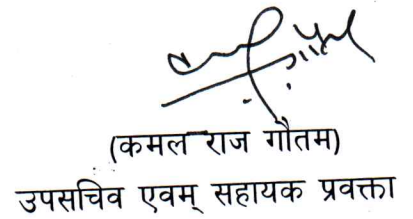 (कमल राज गौतम)
उपसचिव एवम् सहायक प्रवक्ता